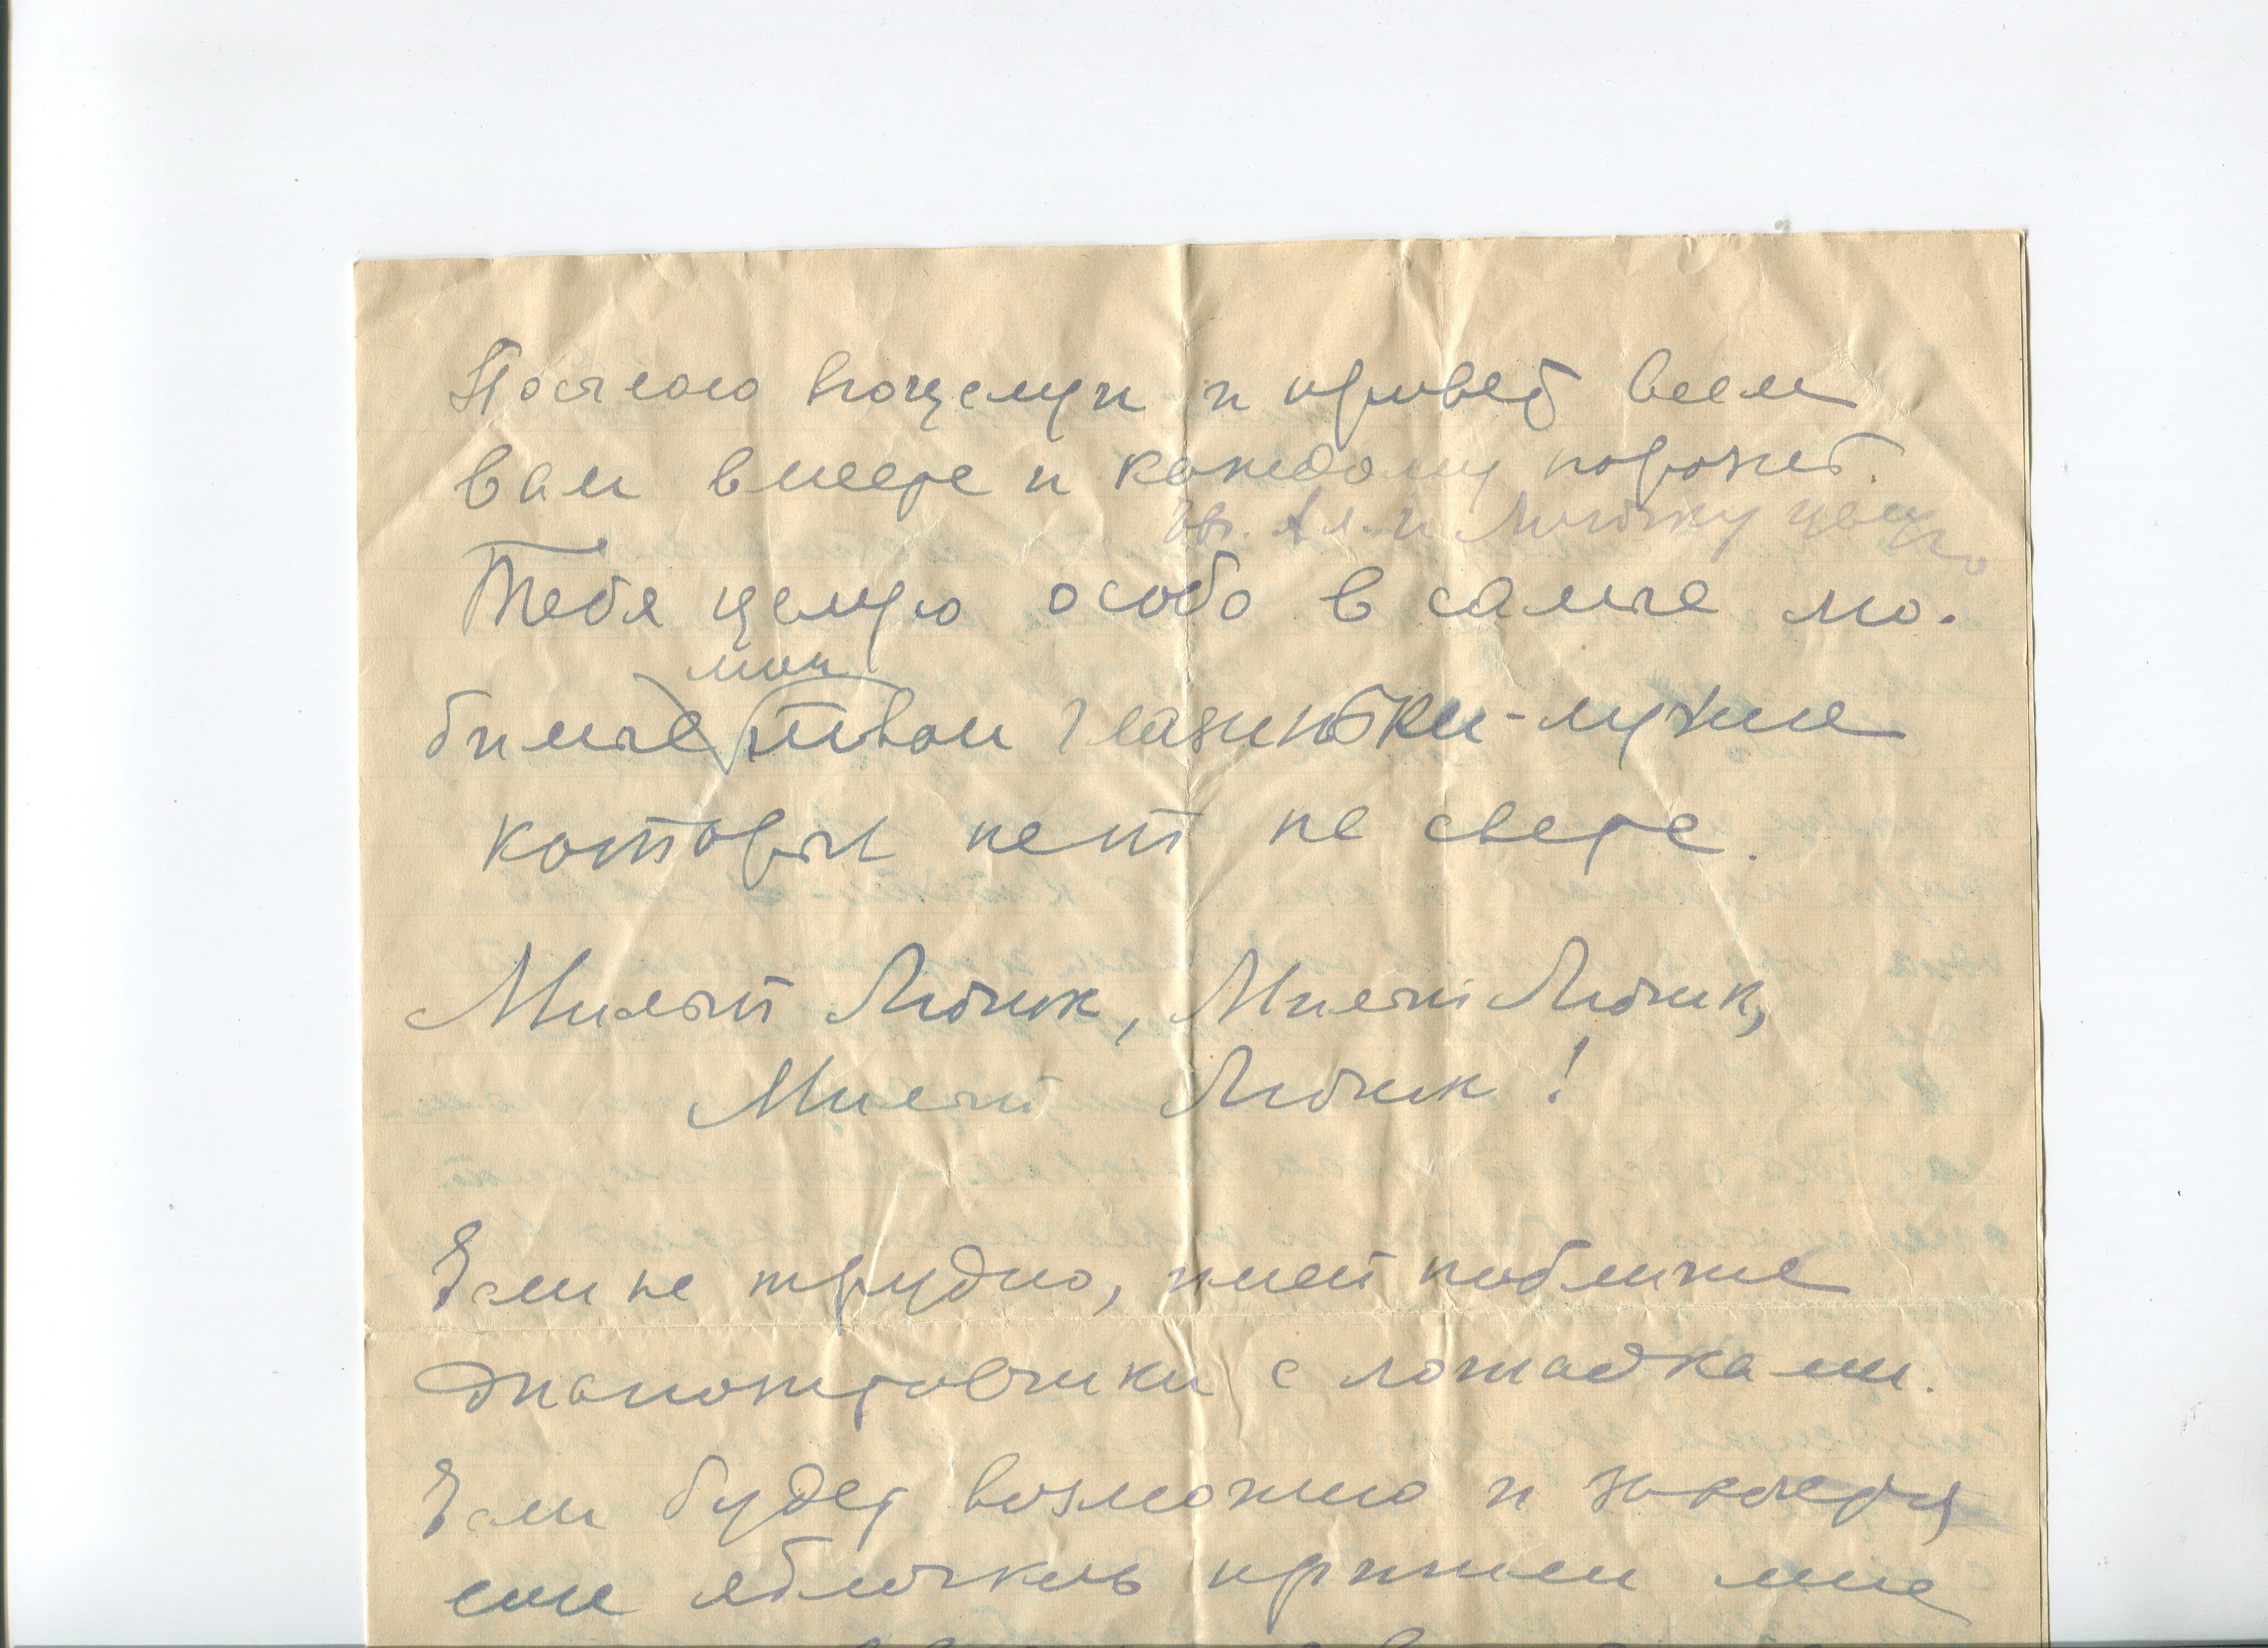 Посылаю поцелуи и привет всем
вам вместе и каждому порознь.
Ал. и Любочку целую
Тебя целую особо в самые лю-
мои
бимые твои глазыньки - лучше
которых нет на свете.
Милый Любик, Милый Любик,
Милый Любик!
Если не трудно, пиши поближе
с лошадками.
Если будет возможно и
еще яблочков пришли мне